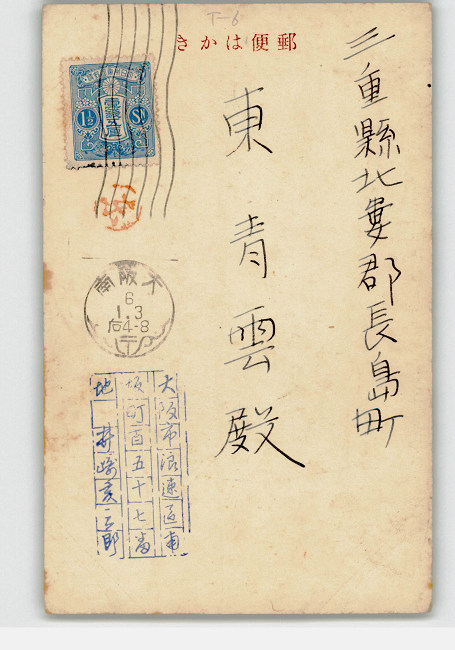 T-6
きかは便郵
三重縣北婁郡長島町
東青雲殿
1½ Sn
南阪大
6
1.3
后4-8
大阪市浪速區南
坂町百五十七番
地 井崎亥三郎